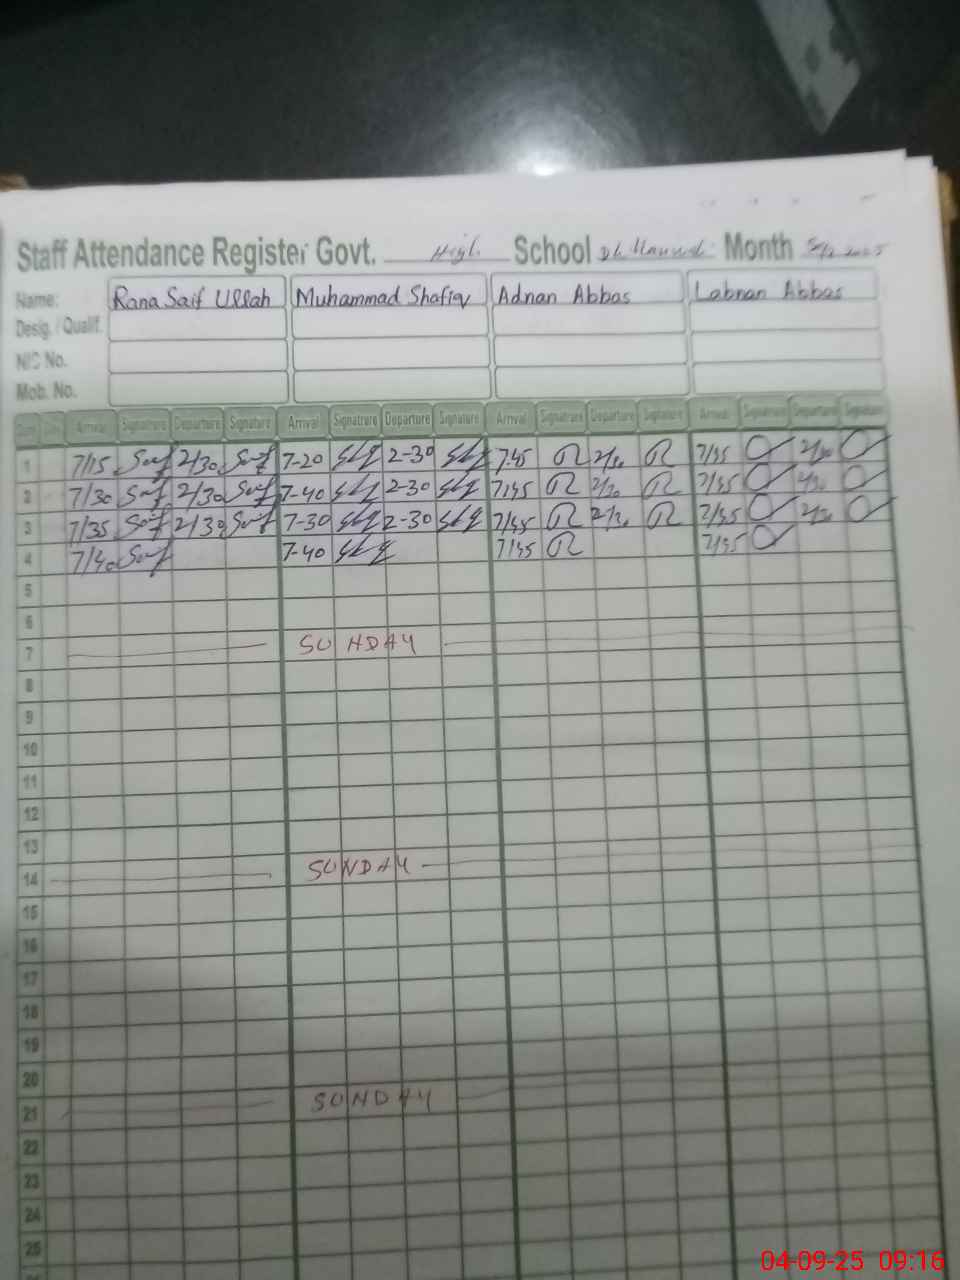 Staff Attendance Register Govt. High. School Month 2025
Name: Rana Saif Ullah Muhammad Shafiq Adnan Abbas Labnan Abbas
Desig. / Qualif.
NIC No.
Mob. No.
Arrival Signatrure Departure Signature Arrival Signatrure Departure Signature Arrival Signatrure Departure Signature Arrival Signatrure Departure Signature
1 7/15 2/30 7-20 2-30 7.45 2/30 7/45 2/30
2 7/30 2/30 7-40 2-30 7/45 2/30 7/45 2/30
3 7/35 2/30 7-30 2-30 7/45 2/30 7/45 2/30
4 7/40 7-40 7/45 7/45
5
6
7 SUNDAY
8
9
10
11
12
13
14 SUNDAY
15
16
17
18
19
20
21 SUNDAY
22
23
24
25
04-09-25 09:16